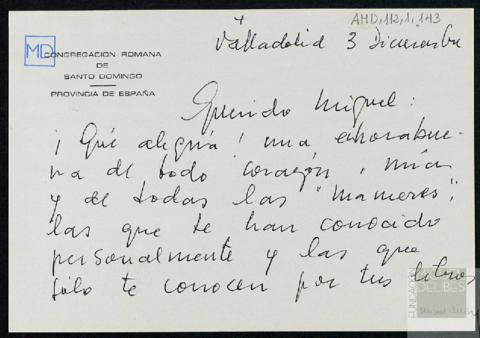 AMD,112,1,143
MD
CONGREGACION ROMANA
DE
SANTO DOMINGO
PROVINCIA DE ESPAÑA
Valladolid 3 Diciembre
Querido Miguel:
¡Qué alegría! una enhorabue-
na de todo corazón, mía
y de todas las "mameres",
las que te han conocido
personalmente y las que
sólo te conocen por tus libros
FUNDACIÓN
DELIBES